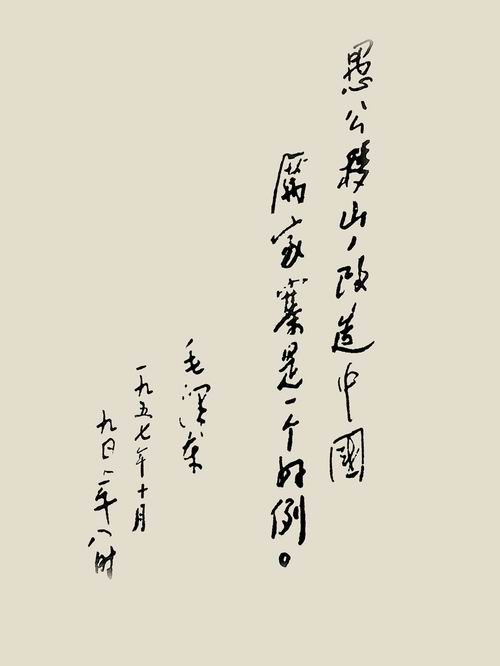 愚公移山，改造中國
厲家寨是一个好例。
毛澤东
一九五七年十月
九日上午八时